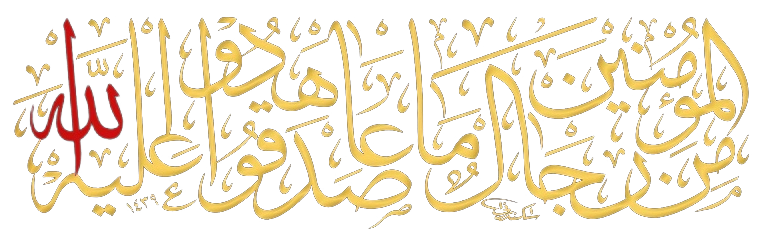 من المؤمنين رجال صدقوا ما عاهدوا الله عليه
١٤٣٩